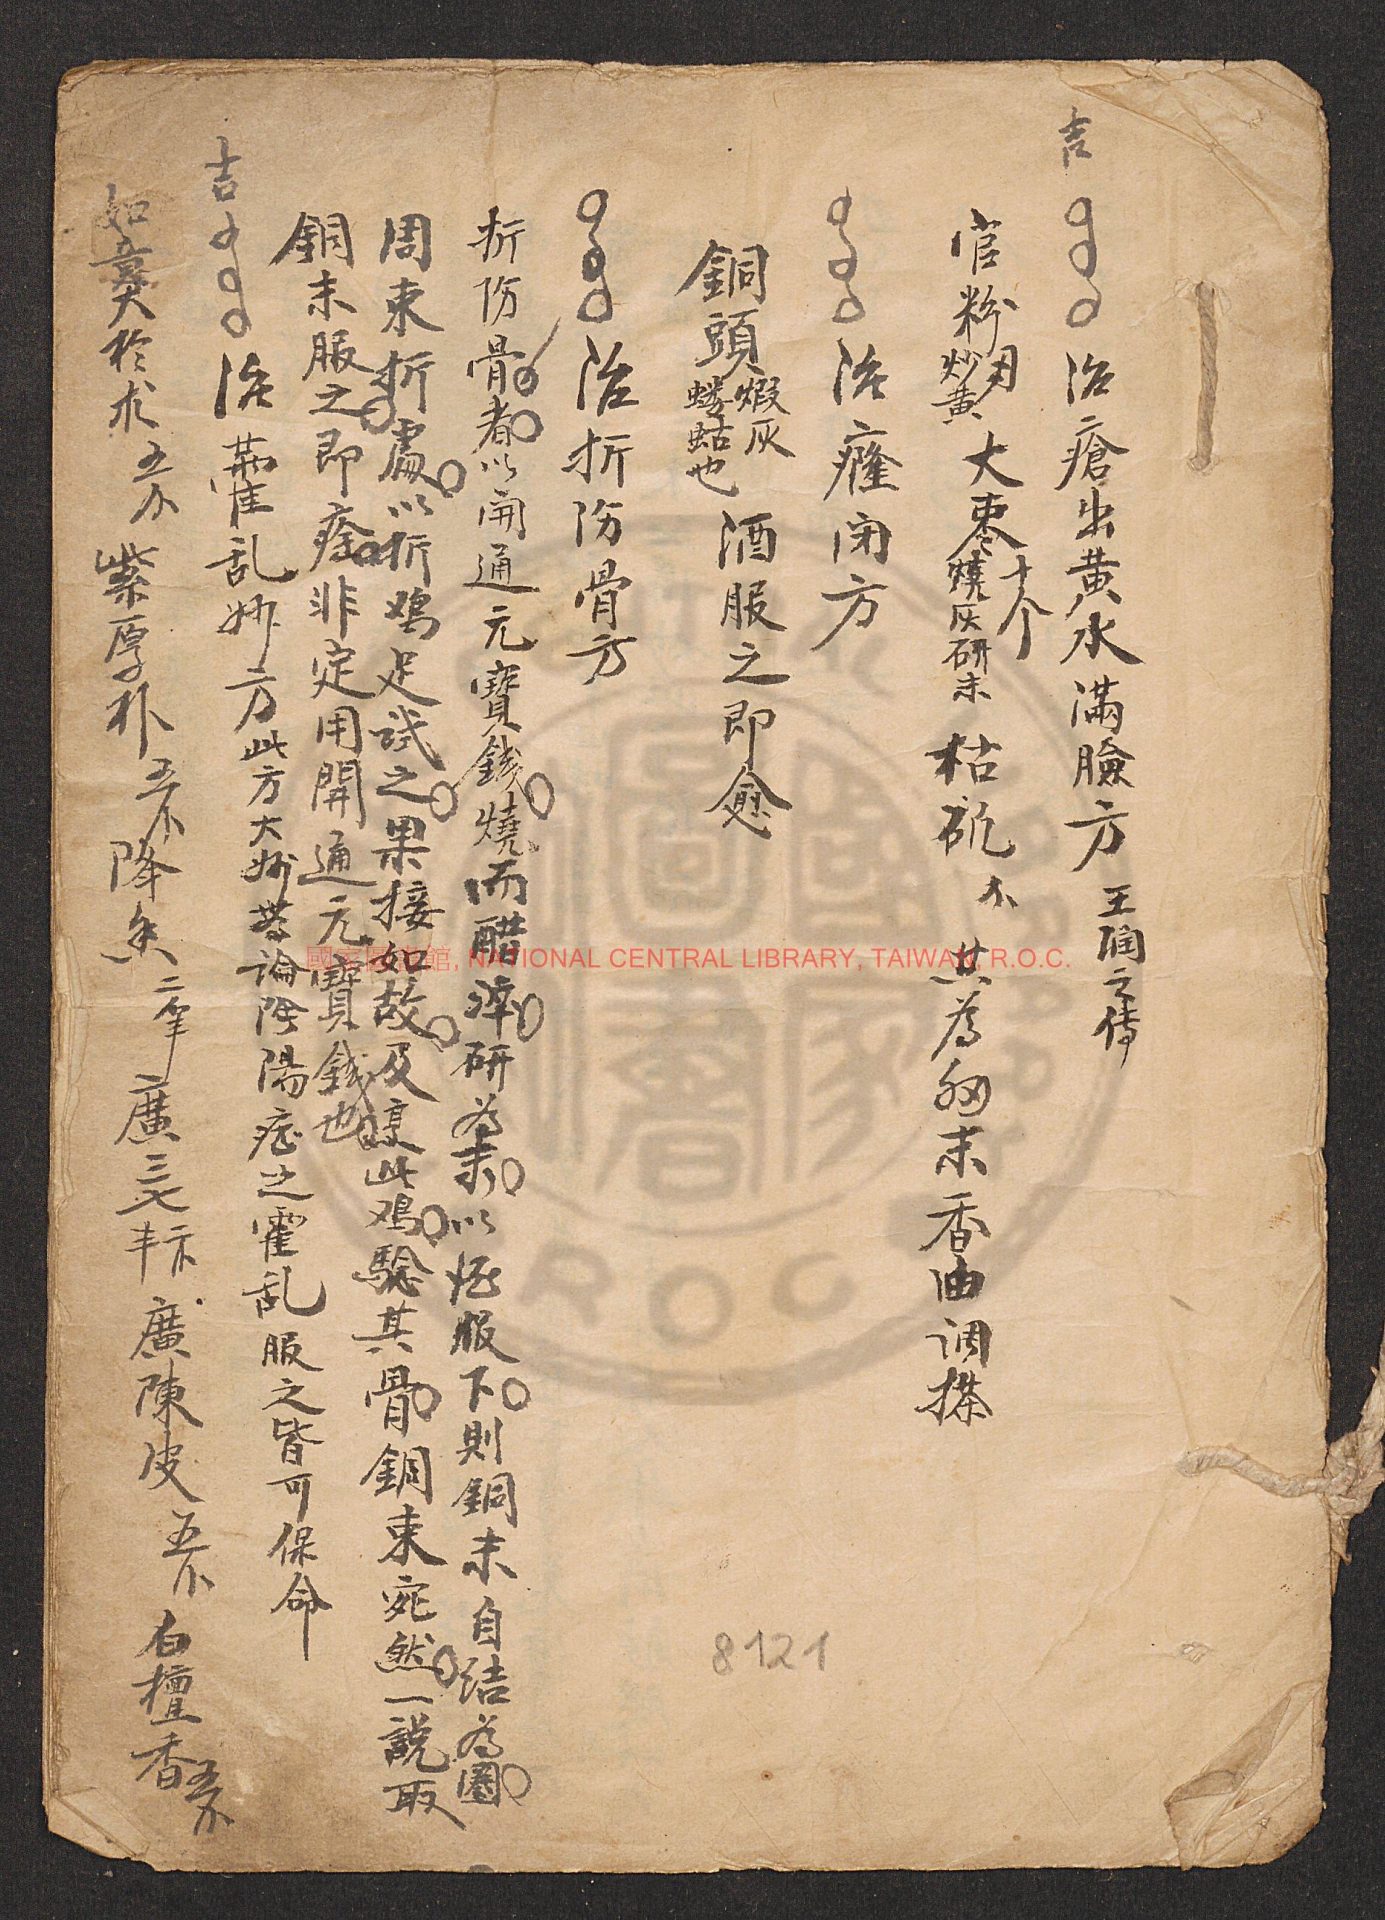 吉 治瘡出黄水滿臉方 王润之传
官粉炒黄 大枣十个燒灰研末 枯矾 共為細末香油调搽
治癃闭方
銅頭煅灰蝼蛄也 酒服之即愈
治折伤骨方
折伤骨者以開通元寶錢燒而醋淬研為末以酒服下則銅末自结為圈
周束折處以折鸡足試之果接如故及烹此鸡驗其骨銅束宛然一説取
銅末服之即痊非定用開通元寶錢也
吉 治霍乱妙方 此方大妙無論陰陽症之霍乱服之皆可保命
紫厚朴 降香 廣三七 廣陳皮 白檀香
國家圖書館, NATIONAL CENTRAL LIBRARY, TAIWAN, R.O.C.
8121